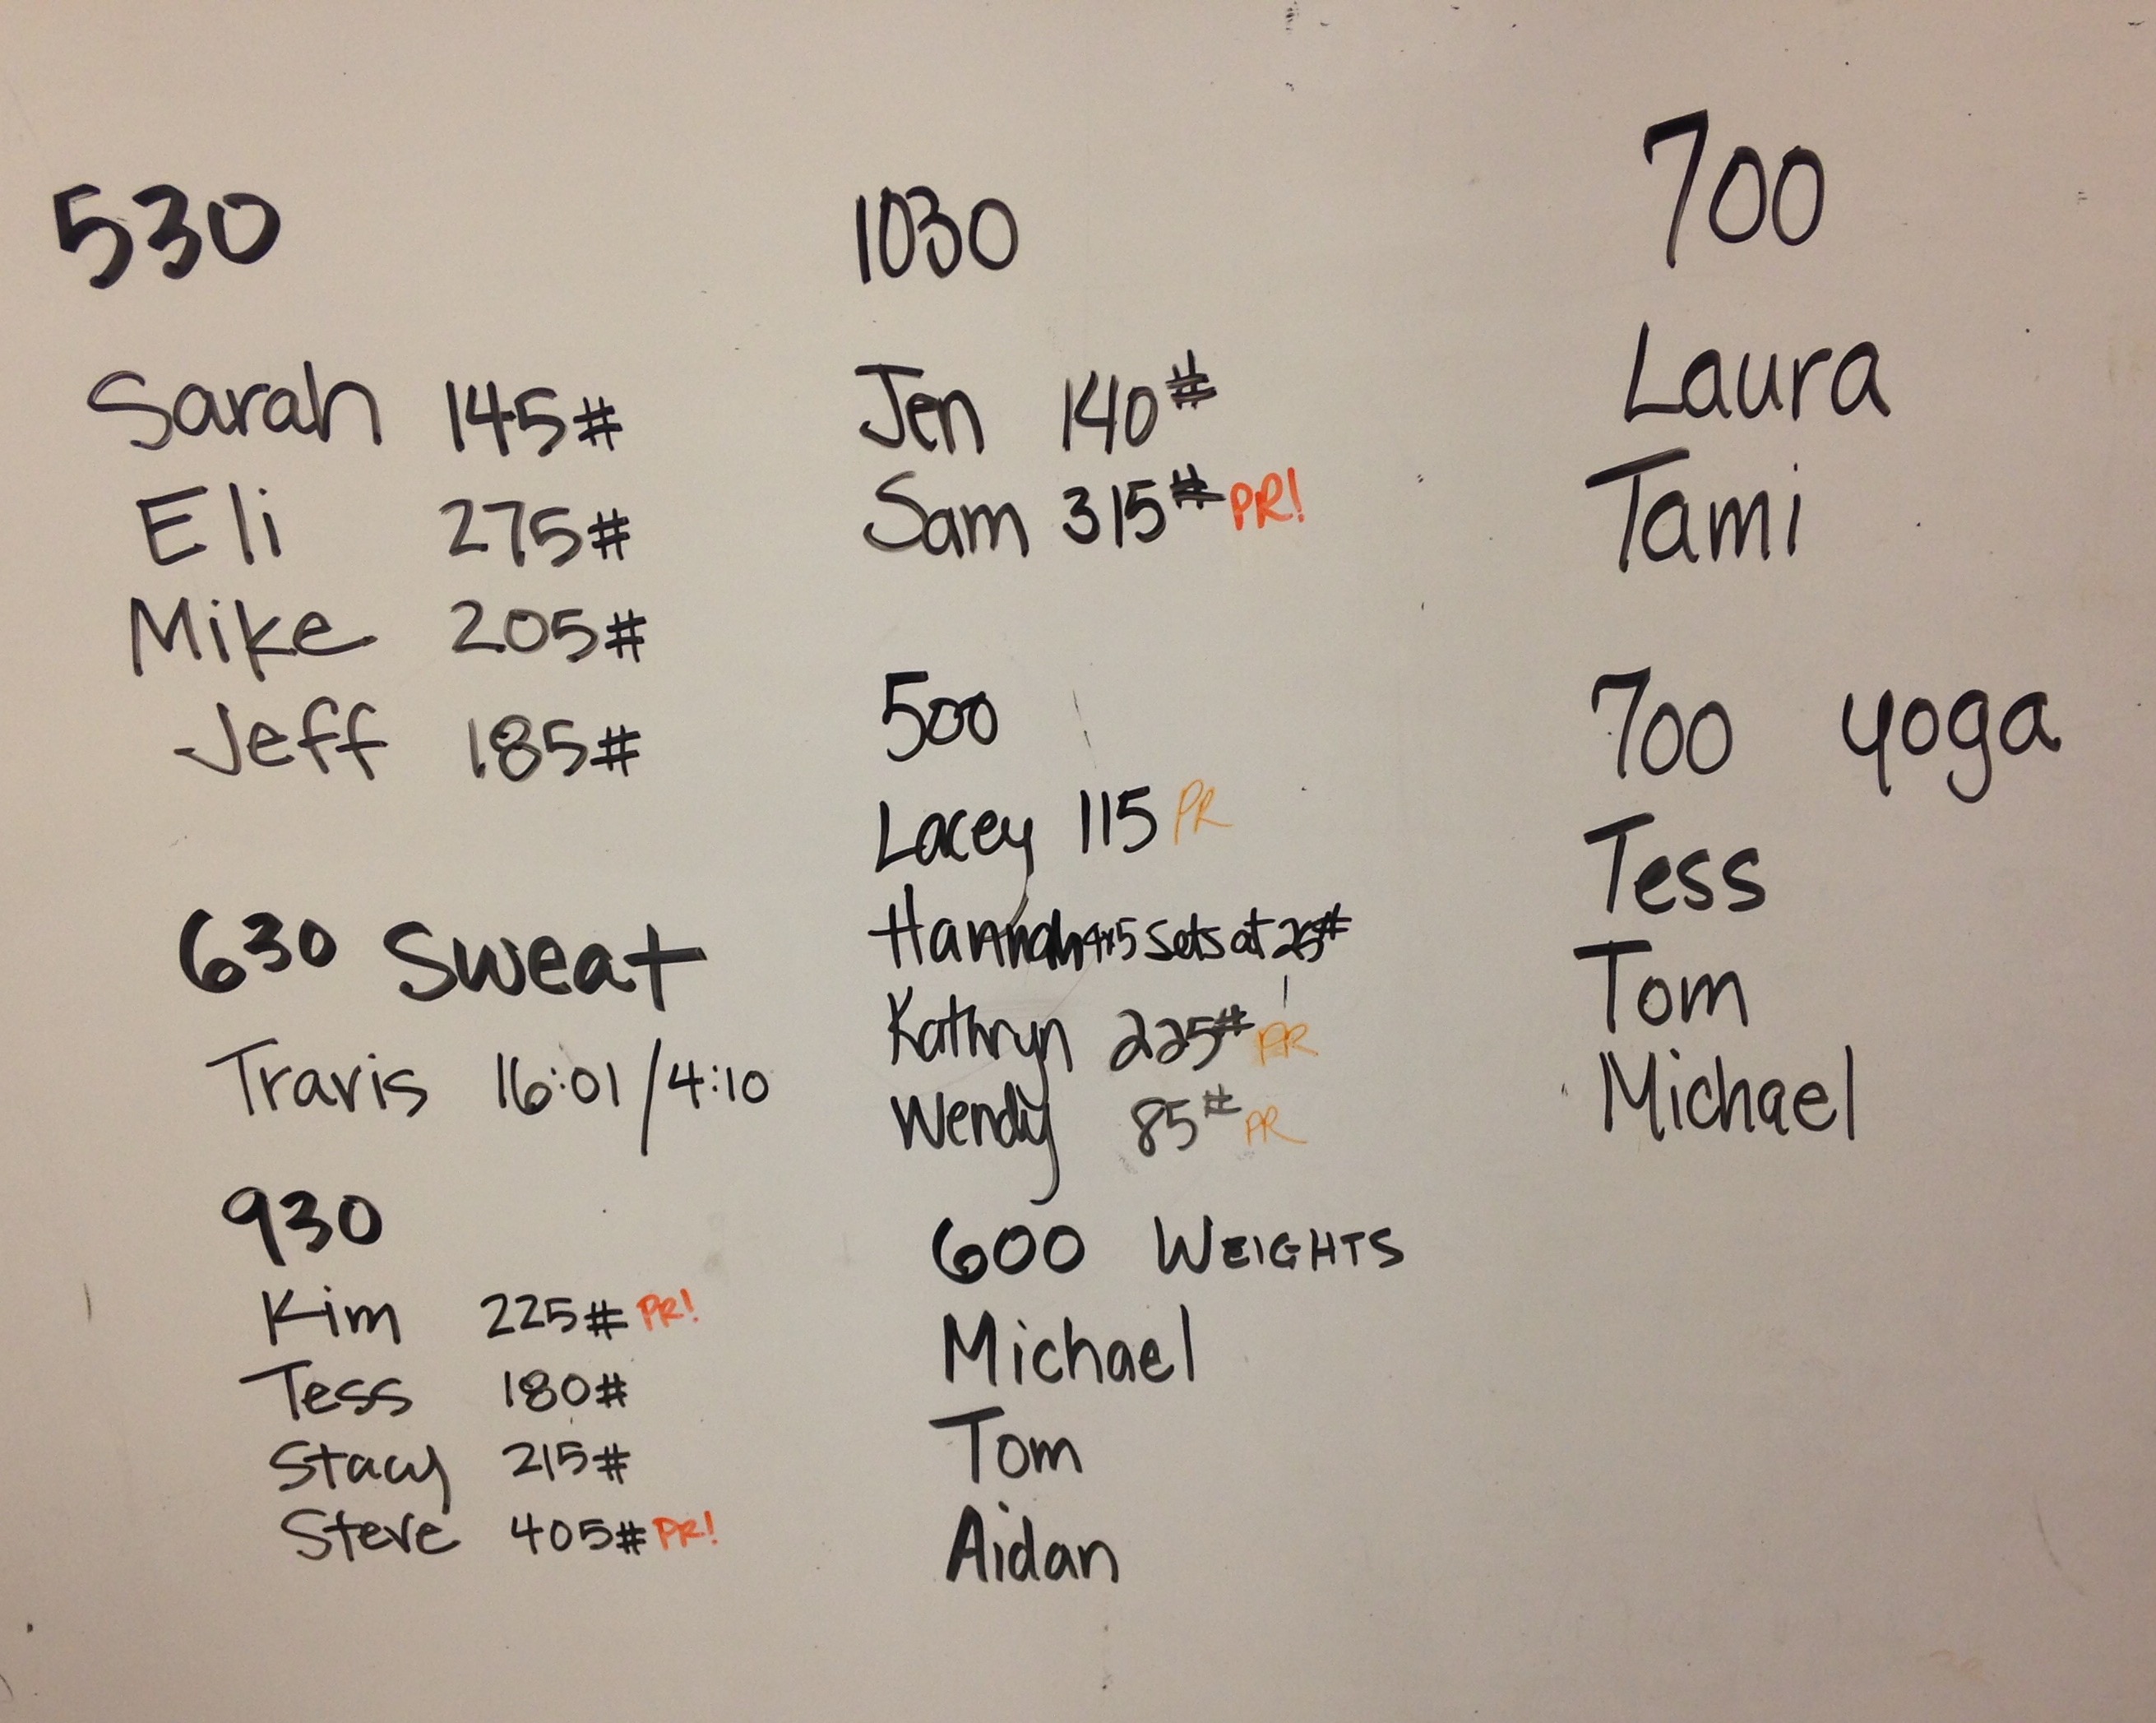 530
Sarah 145#
Eli 275#
Mike 205#
Jeff 185#
630 Sweat
Travis 16:01/4:10
930
Kim 225# PR!
Tess 180#
Stacy 215#
Steve 405# PR!
1030
Jen 140#
Sam 315# PR!
500
Lacey 115 PR
Hannah 4x5 Sets at 25#
Kathryn 225# PR
Wendy 85# PR
600 WEIGHTS
Michael
Tom
Aidan
700
Laura
Tami
700 yoga
Tess
Tom
Michael